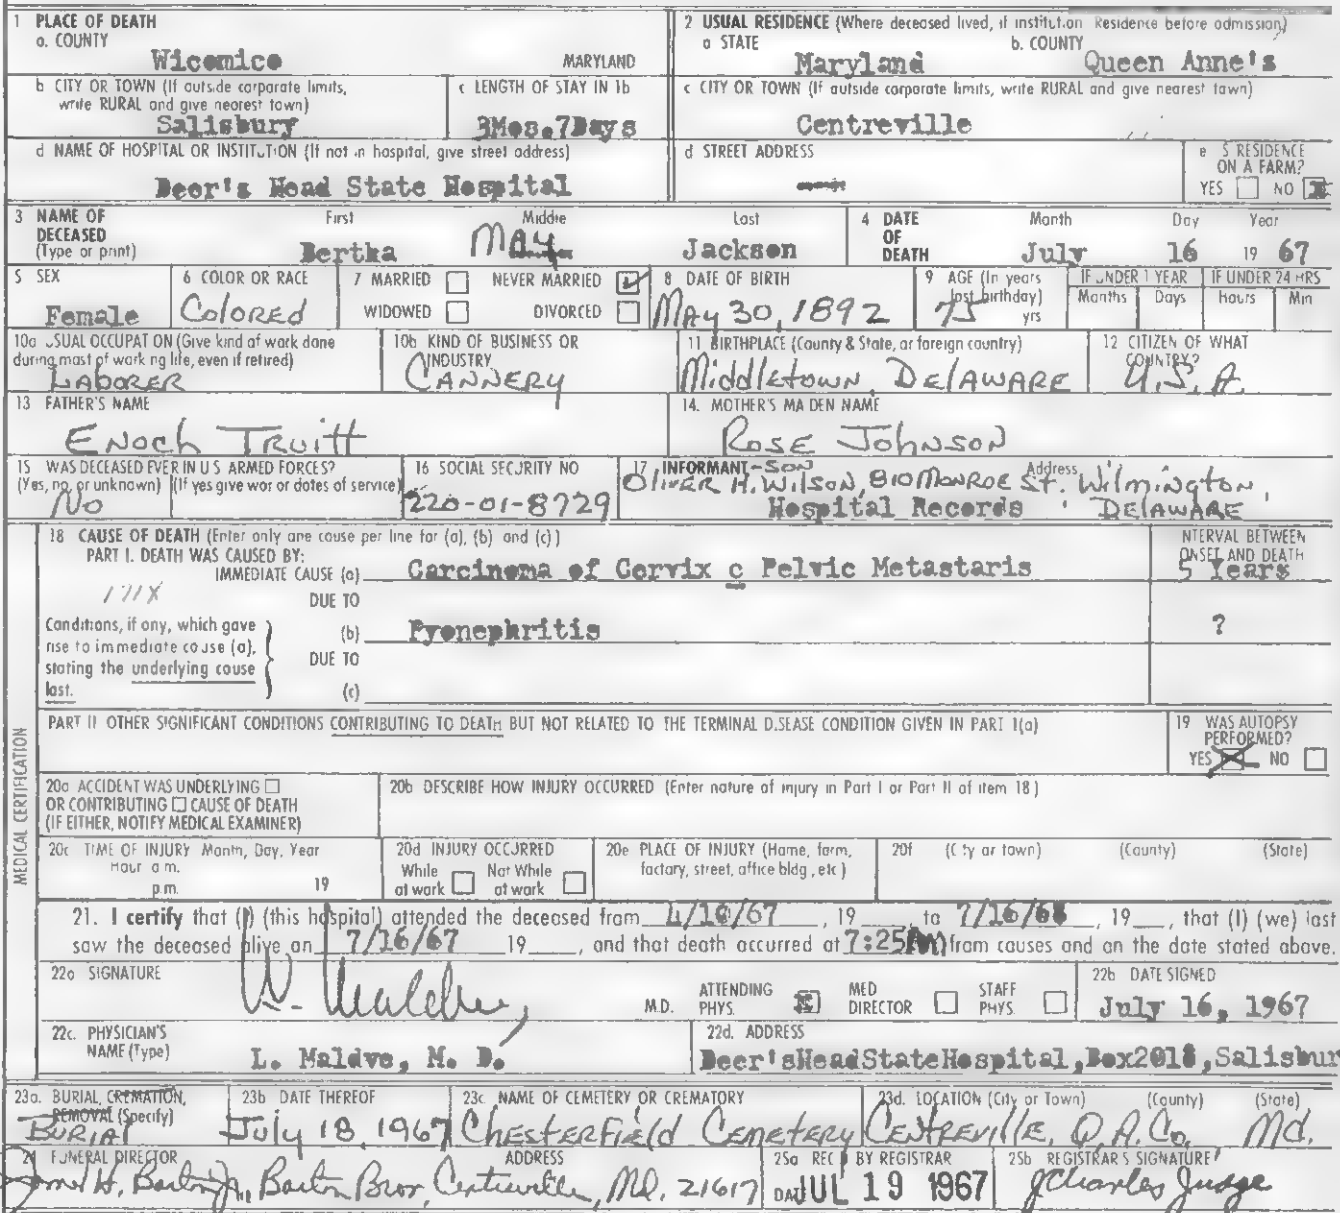 1 PLACE OF DEATH
a. COUNTY
Wicomico MARYLAND
2 USUAL RESIDENCE (Where deceased lived, if institution Residence before admission)
a STATE b. COUNTY
Maryland Queen Anne's
b CITY OR TOWN (If outside corporate limits, write RURAL and give nearest town)
Salisbury
c LENGTH OF STAY IN 1b
3Mos.7Days
c CITY OR TOWN (If outside corporate limits, write RURAL and give nearest town)
Centreville
d NAME OF HOSPITAL OR INSTITUTION (If not in hospital, give street address)
Deer's Head State Hospital
d STREET ADDRESS
e IS RESIDENCE ON A FARM?
YES NO X
3 NAME OF DECEASED (Type or print)
First Middle Last
Bertha MAY Jackson
4 DATE OF DEATH
Month Day Year
July 16 19 67
5 SEX
Female
6 COLOR OR RACE
Colored
7 MARRIED NEVER MARRIED ✓
WIDOWED DIVORCED
8 DATE OF BIRTH
MAy 30, 1892
9 AGE (In years last birthday)
75 yrs
IF UNDER 1 YEAR IF UNDER 24 HRS
Months Days Hours Min
10a USUAL OCCUPATION (Give kind of work done during most of working life, even if retired)
LABORER
10b KIND OF BUSINESS OR INDUSTRY
CANNERY
11 BIRTHPLACE (County & State, or foreign country)
Middletown, DELAWARE
12 CITIZEN OF WHAT COUNTRY?
U.S.A.
13 FATHER'S NAME
Enoch Truitt
14. MOTHER'S MAIDEN NAME
Rose Johnson
15 WAS DECEASED EVER IN U S ARMED FORCES?
(Yes, no, or unknown) (If yes give war or dates of service)
No
16 SOCIAL SECURITY NO
220-01-8729
17 INFORMANT-SON Address
OliVER H. Wilson, 810 MonROE St. Wilmington,
Hospital Records DELAWARE
MEDICAL CERTIFICATION
18 CAUSE OF DEATH (Enter only one cause per line for (a), (b) and (c))
PART I. DEATH WAS CAUSED BY:
INTERVAL BETWEEN ONSET AND DEATH
IMMEDIATE CAUSE (a) Carcinoma of Cervix c Pelvic Metastaris 5 Years
171X
DUE TO
Conditions, if any, which gave rise to immediate cause (a), stating the underlying cause last.
(b) Pyonephritis ?
DUE TO
(c)
PART II OTHER SIGNIFICANT CONDITIONS CONTRIBUTING TO DEATH BUT NOT RELATED TO THE TERMINAL DISEASE CONDITION GIVEN IN PART I(a)
19 WAS AUTOPSY PERFORMED?
YES X NO
20a ACCIDENT WAS UNDERLYING
OR CONTRIBUTING CAUSE OF DEATH
(IF EITHER, NOTIFY MEDICAL EXAMINER)
20b DESCRIBE HOW INJURY OCCURRED (Enter nature of injury in Part I or Part II of item 18)
20c TIME OF INJURY Month, Day, Year
Hour a.m.
p.m. 19
20d INJURY OCCURRED
While at work Not While at work
20e PLACE OF INJURY (Home, farm, factory, street, office bldg, etc)
20f (City or town) (County) (State)
21. I certify that (I) (this hospital) attended the deceased from 4/10/67, 19__, to 7/16/68, 19__, that (I) (we) last
saw the deceased alive on 7/16/67 19__, and that death occurred at 7:25 from causes and on the date stated above.
22a SIGNATURE
M.D. ATTENDING PHYS. X MED DIRECTOR STAFF PHYS.
22b DATE SIGNED
July 16, 1967
22c. PHYSICIAN'S NAME (Type)
L. Maldve, M. D.
22d. ADDRESS
Deer'sHeadStateHospital,Box2018,Salisbur
23a. BURIAL, CREMATION, REMOVAL (Specify)
BURIAl
23b DATE THEREOF
July 18, 1967
23c NAME OF CEMETERY OR CREMATORY
ChesterField Cemetery
23d. LOCATION (City or Town) (County) (State)
CENtREVIllE, Q.A.Co. Md.
24 FUNERAL DIRECTOR ADDRESS
James H. Barton Jr., Barton Bros, Centreville, Md. 21617
25a REC'D BY REGISTRAR
DATE JUL 19 1967
25b REGISTRAR'S SIGNATURE
J Charles Judge